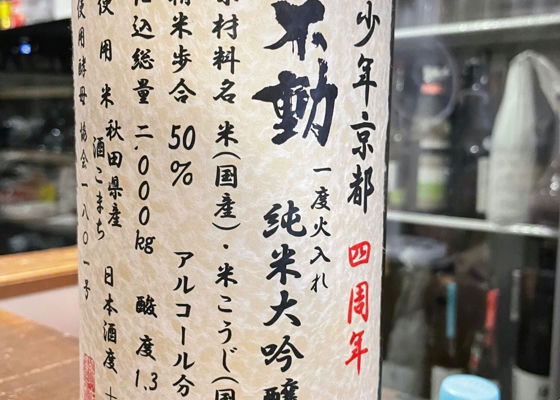 少年京都 四周年
不動
一度火入れ
純米大吟醸
原材料名 米(国産)・米こうじ(国
精米歩合 50% アルコール分
仕込総量 二、000kg 酸度1.3
使用米 秋田県産
酒こまち 日本酒度 +
使用酵母 協会一八〇一号